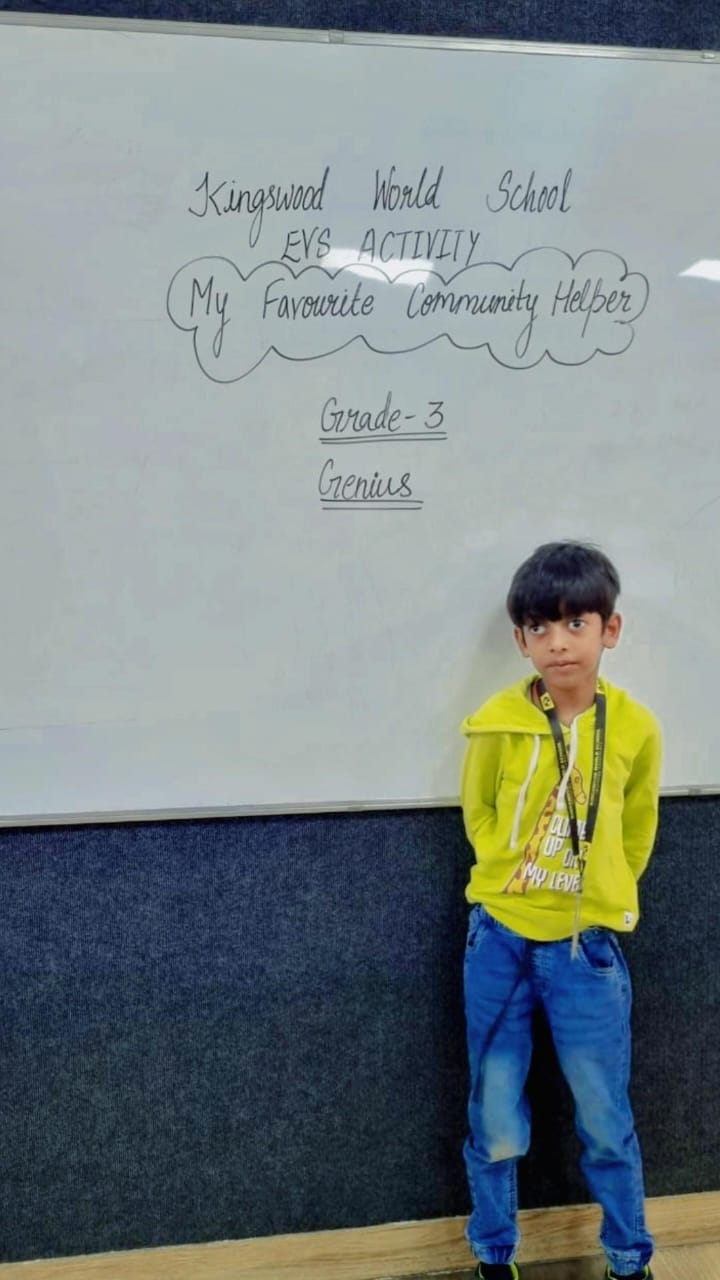 Kingswood World School
EVS ACTIVITY
My Favourite Community Helper
Grade-3
Genius
UP ON
MY LEVEL